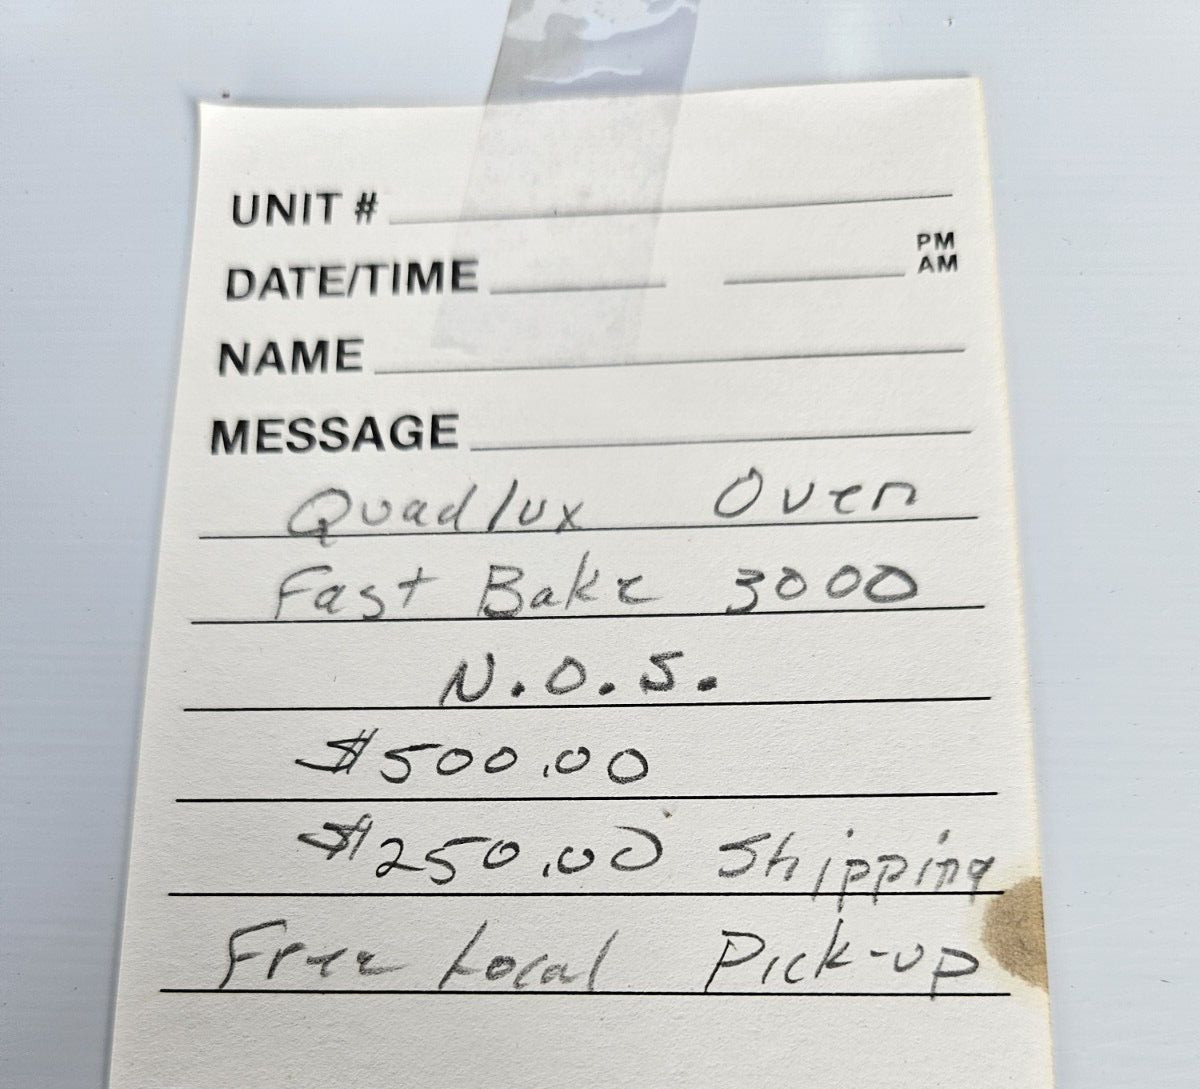 UNIT #
PM
DATE/TIME AM
NAME
MESSAGE
Quadlux Oven
Fast Bake 3000
N.O.S.
$500.00
$250.00 Shipping
Free Local Pick-up